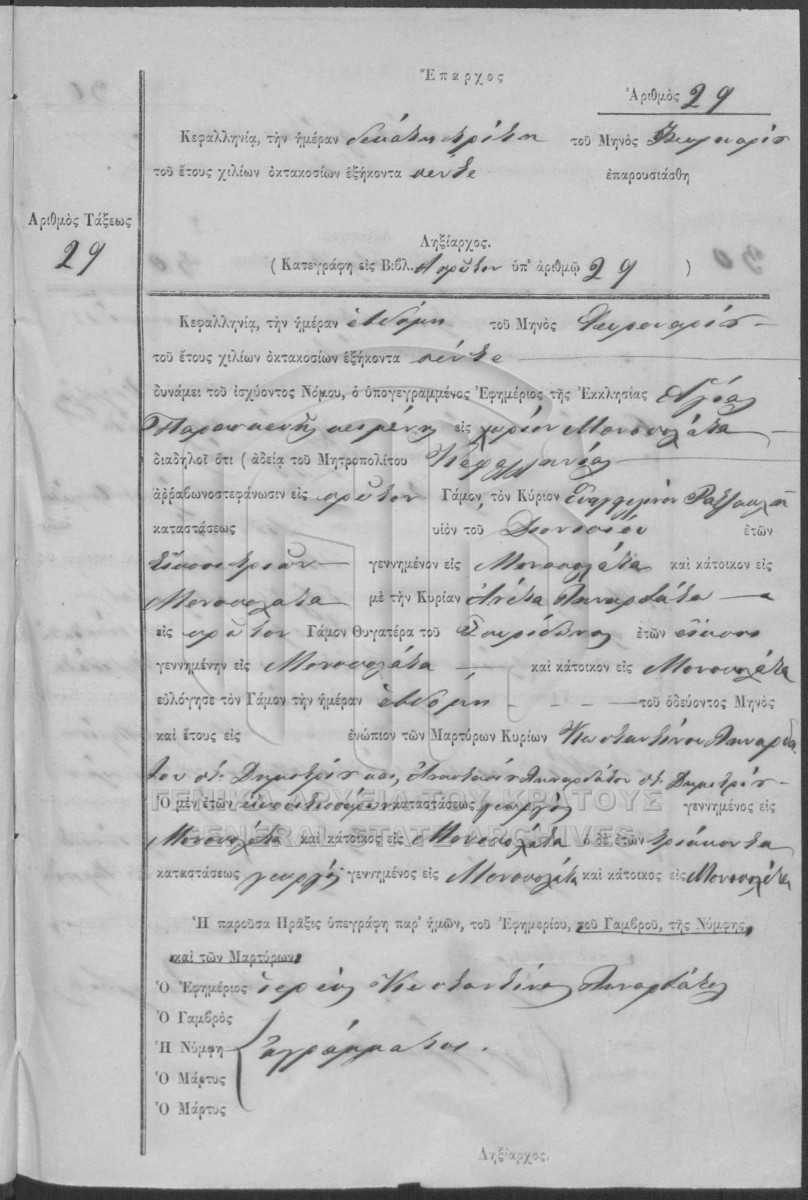 Ἔπαρχος
Ἀριθμὸς 29
Κεφαλληνίᾳ, τὴν ἡμέραν δεκάτην τρίτην τοῦ Μηνὸς Φευρουαρίου
τοῦ ἔτους χιλίων ὀκτακοσίων ἑξήκοντα πέντε ἐπαρουσιάσθη
Ἀριθμὸς Τάξεως
29
Ληξίαρχος.
( Κατεγράφη εἰς Βιβλ. πρῶτον ὑπ' ἀριθμῷ 29 )
Κεφαλληνίᾳ, τὴν ἡμέραν ἑβδόμη τοῦ Μηνὸς Φευρουαρίου
τοῦ ἔτους χιλίων ὀκτακοσίων ἑξήκοντα πέντε
δυνάμει τοῦ ἰσχύοντος Νόμου, ὁ ὑπογεγραμμένος Ἐφημέριος τῆς Ἐκκλησίας Ἁγίας
Παρασκευῆς κειμένης εἰς χωρίον Μονοπολάτα
διαδηλοῖ ὅτι ( ἀδείᾳ τοῦ Μητροπολίτου Κεφαλληνίας
ἀῤῥαβωνοστεφάνωσιν εἰς πρῶτον Γάμον, τὸν Κύριον Εὐαγγελινὸν
καταστάσεως υἱὸν τοῦ Διονυσίου ἐτῶν
εἴκοσι τριῶν γεννημένον εἰς Μονοπολάτα καὶ κάτοικον εἰς
Μονοπολάτα μὲ τὴν Κυρίαν Ἀνέτα Λιναρδάτα
εἰς πρῶτον Γάμον Θυγατέρα τοῦ Σπυρίδωνος ἐτῶν εἴκοσι
γεννημένην εἰς Μονοπολάτα καὶ κάτοικον εἰς Μονοπολάτα
εὐλόγησε τὸν Γάμον τὴν ἡμέραν ἑβδόμη τοῦ ὁδεύοντος Μηνὸς
καὶ ἔτους εἰς ἐνώπιον τῶν Μαρτύρων Κυρίων Κωσταντίνου Λιναρδά
του π. Δημητρίου καὶ Ἀναστασίου Λιναρδάτου π. Δημητρίου
ΓΕΝΙΚΑ ΑΡΧΕΙΑ ΤΟΥ ΚΡΑΤΟΥΣ
Ὁ μὲν ἐτῶν εἰκοσιτεσσάρων καταστάσεως γεωργὸς γεννημένος εἰς
GENERAL STATE ARCHIVES
Μονοπολάτα καὶ κάτοικος εἰς Μονοπολάτα ὁ δὲ ἐτῶν τριάκοντα
καταστάσεως γεωργὸς γεννημένος εἰς Μονοπολάτα καὶ κάτοικος εἰς Μονοπολάτα
Ἡ παροῦσα Πρᾶξις ὑπεγράφη παρ' ἡμῶν, τοῦ Ἐφημερίου, τοῦ Γαμβροῦ, τῆς Νύμφης,
καὶ τῶν Μαρτύρων
Ὁ Ἐφημέριος ἱερεὺς Κωσταντῖνος Λιναρδάτος
Ὁ Γαμβρὸς
Ἡ Νύμφη ἀγράμματοι.
Ὁ Μάρτυς
Ὁ Μάρτυς
Ληξίαρχος.